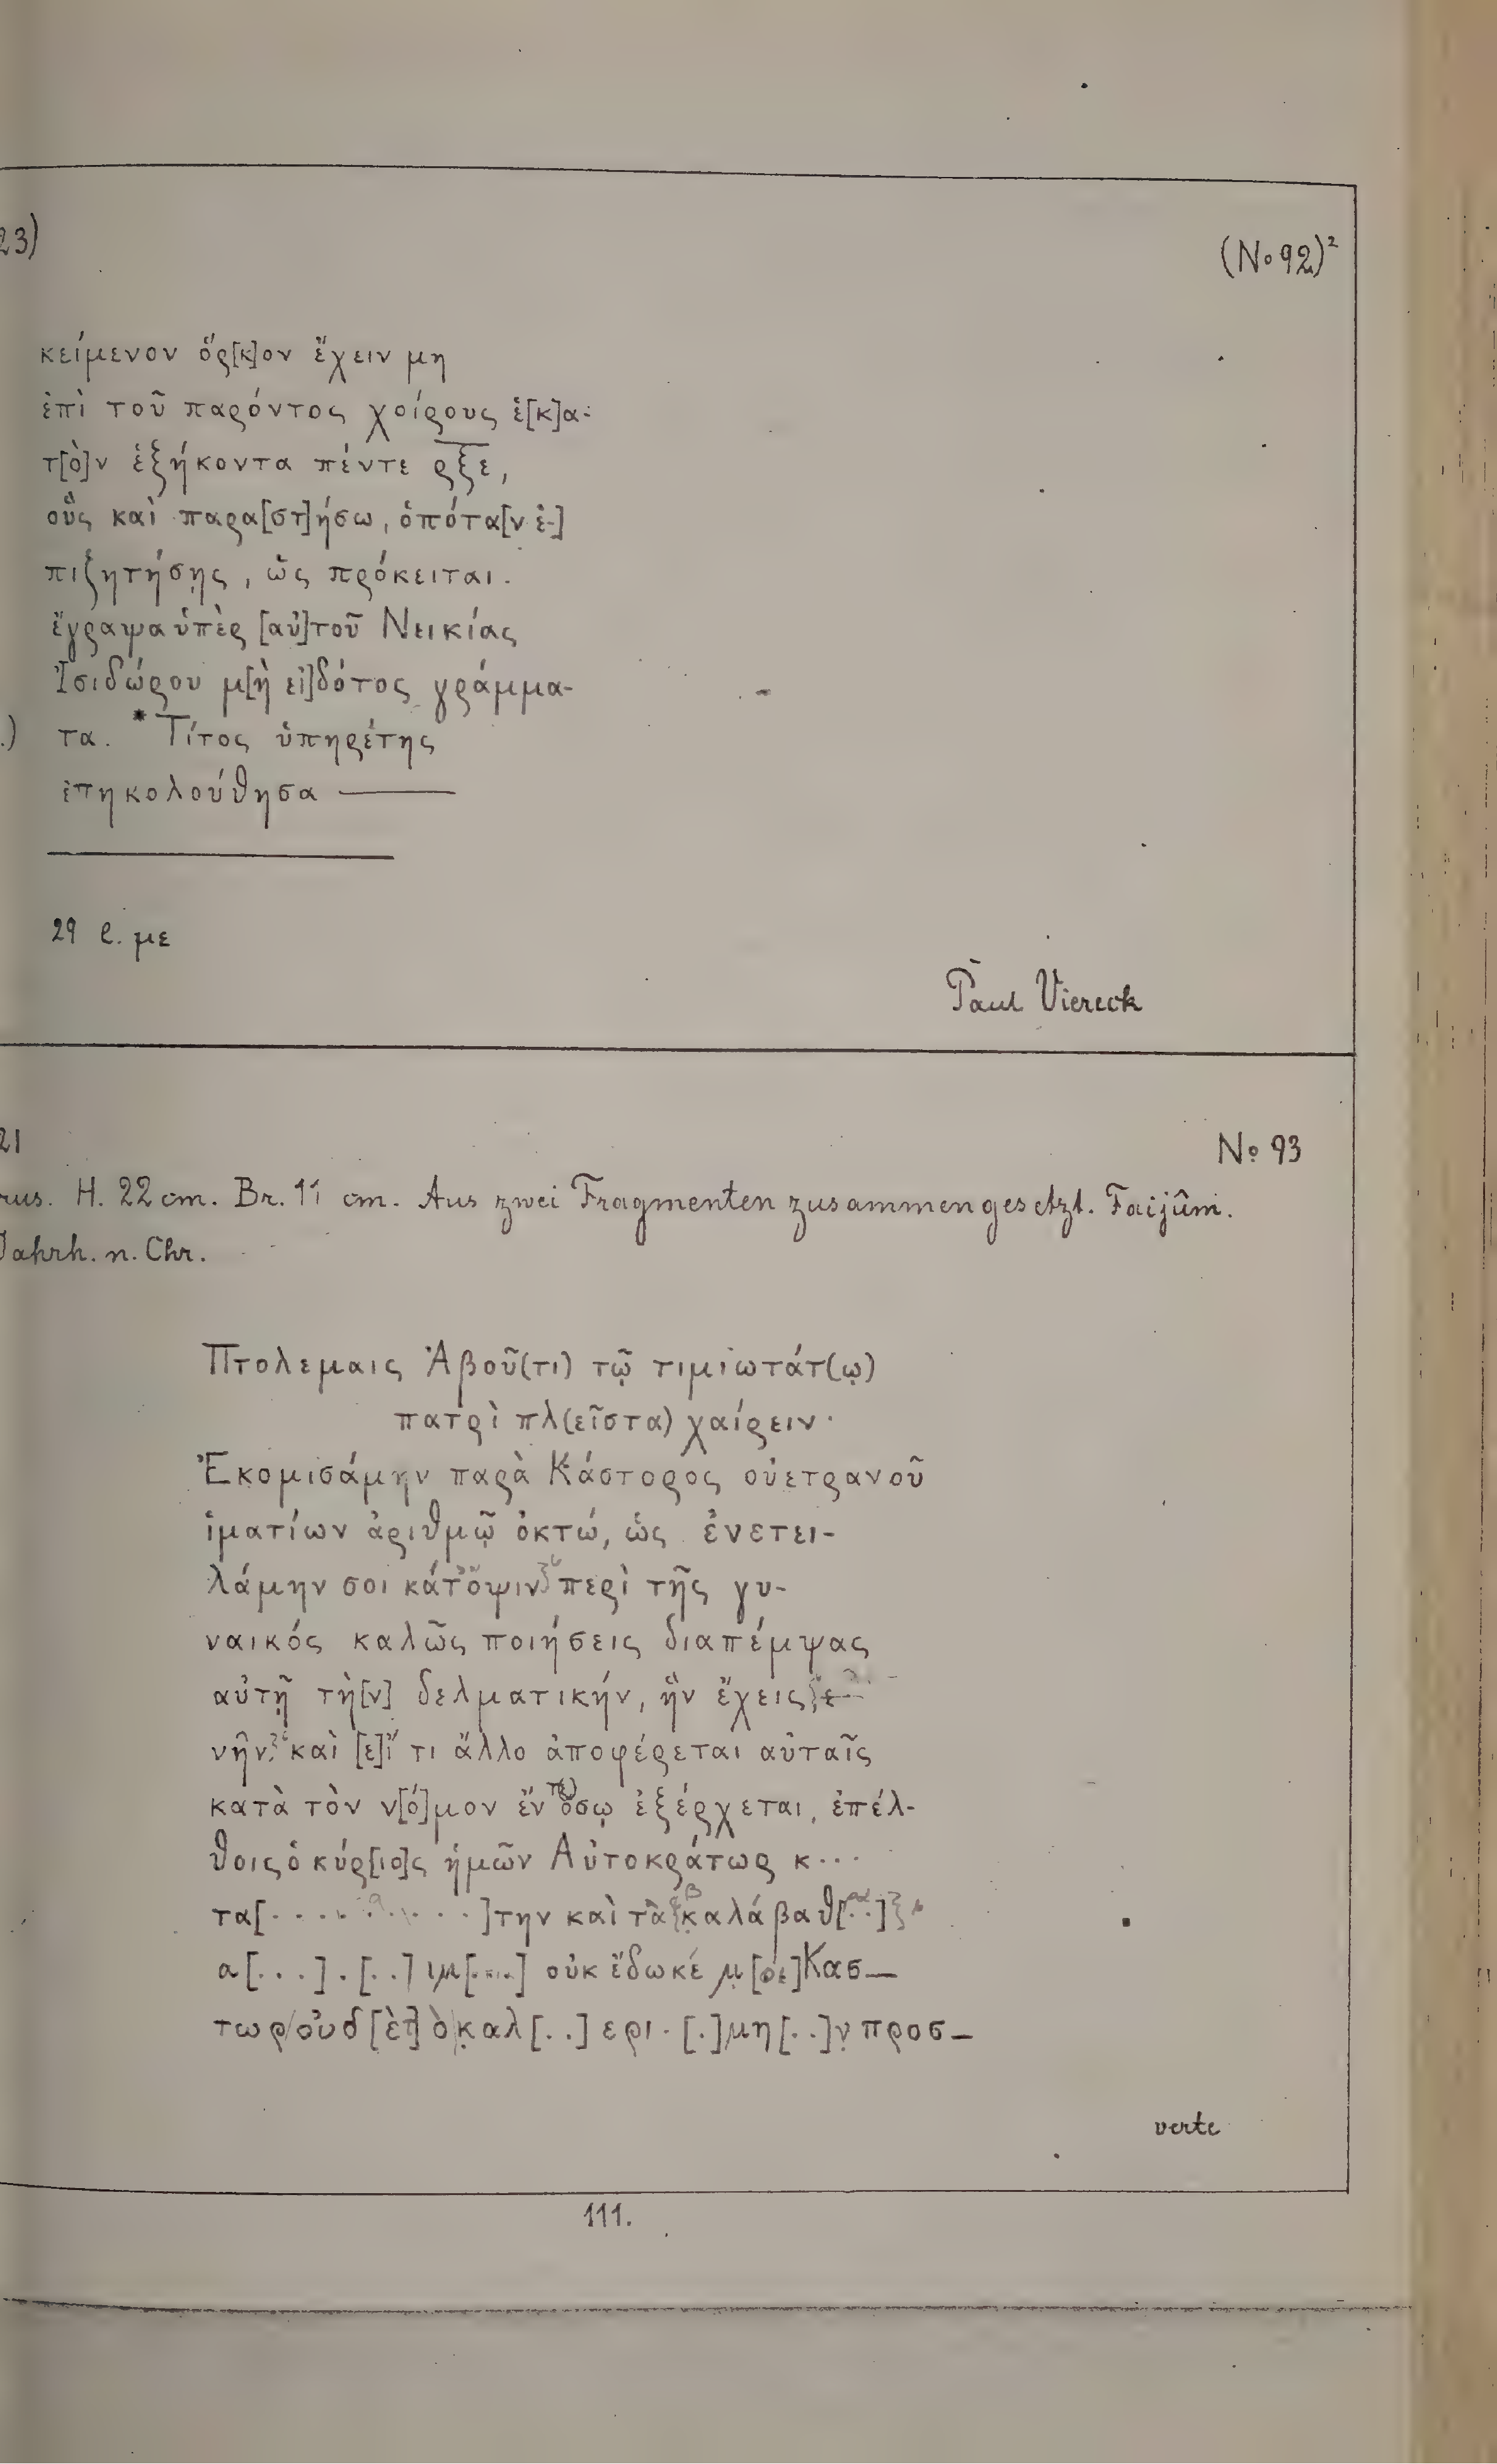 23)
(No 92)²
κείμενον ὅρ[κ]ον ἔχειν μη
ἐπὶ τοῦ παρόντος χοίρους ἑ[κ]α-
τ[ὸ]ν ἑξήκοντα πέντε ρξε,
οὓς καὶ παρα[στ]ήσω, ὁπότα[ν ἐ-]
πιζητήσῃς, ὡς πρόκειται.
ἔγραψα ὑπὲρ [αὐ]τοῦ Νεικίας
Ἰσιδώρου μ[ὴ εἰ]δότος γράμμα-
.) τα. * Τίτος ὑπηρέτης
ἐπηκολούθησα —
29 l. με
Paul Viereck
21
No 93
rus. H. 22 cm. Br. 11 cm. Aus zwei Fragmenten zusammengesetzt. Faijûm.
Jahrh. n. Chr.
Πτολεμαις Ἀβοῦ(τι) τῷ τιμιωτάτ(ῳ)
πατρὶ πλ(εῖστα) χαίρειν·
Ἐκομισάμην παρὰ Κάστορος οὐετρανοῦ
ἱματίων ἀριθμῷ ὀκτώ, ὡς ἐνετει-
λάμην σοι κάτοψιν περὶ τῆς γυ-
ναικός καλῶς ποιήσεις διαπέμψας
αὐτῇ τὴ[ν] δελματικήν, ἣν ἔχεις
νῆν καὶ [ε]ἴ τι ἄλλο ἀποφέρεται αὐταῖς
κατὰ τὸν ν[ό]μον ἐν ὅσῳ ἐξέρχεται, ἐπέλ-
θοις ὁ κύρ[ιο]ς ἡμῶν Αὐτοκράτωρ κ...
τα[..........]την καὶ τὰ καλάβαθ[..]
α[...].[..]ιμ[....] οὐκ ἔδωκέ μ[οι] Κασ-
τωρ οὐδ[ὲ τ]ὸ καλ[..]ερι.[.]μη[..]ν προσ-
verte
111.